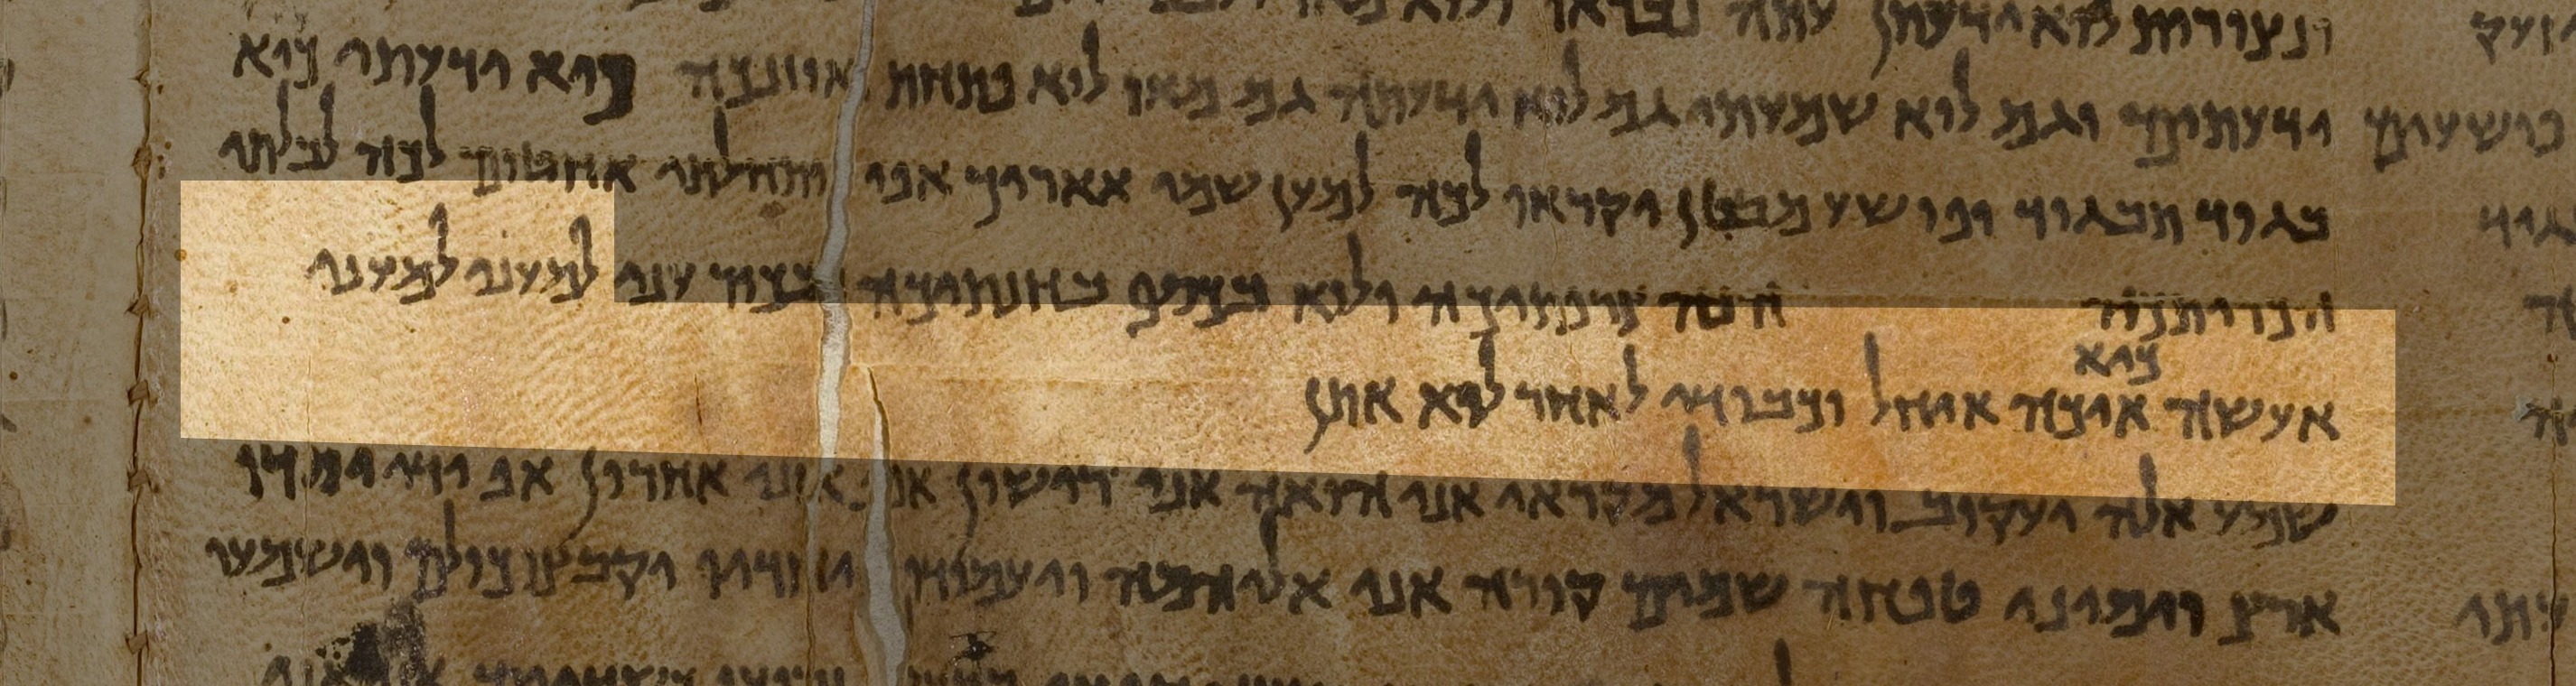 ונצורות לוא ידעתן עתה נבראו ולוא מאז
ידעתים וגם לוא שמעתה גם לוא ידעתה גם מאז לוא פתחת אוזנכה כיא ידעתי כיא
בגוד תבגוד ופושע מבטן יקראו לכה למען שמי אאריך אפי ותהלתי אחטום לכה לבלתי
הכריתכה הנה צרפתיכה ולוא בכסף בחנתיכה בכור עני למעני למעני
כיא
אעשה איכה איחל וכבודי לאחר לוא אתן
שמע אלה יעקוב וישראל מקראי אני הואה אני רישון אף אני אחרון אף ידי יסדו
ארץ וימיני טפחה שמים קורה אני אליהמה ויעמודו יחדיו יקבצו כולם וישמעו